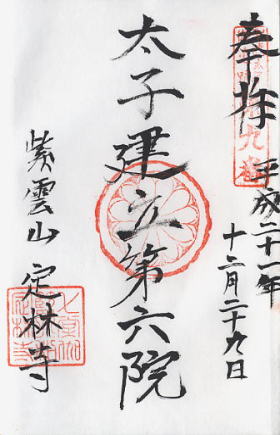 奉拝
平成二十一年
十二月二十九日
太子建立第六院
紫雲山 定林寺